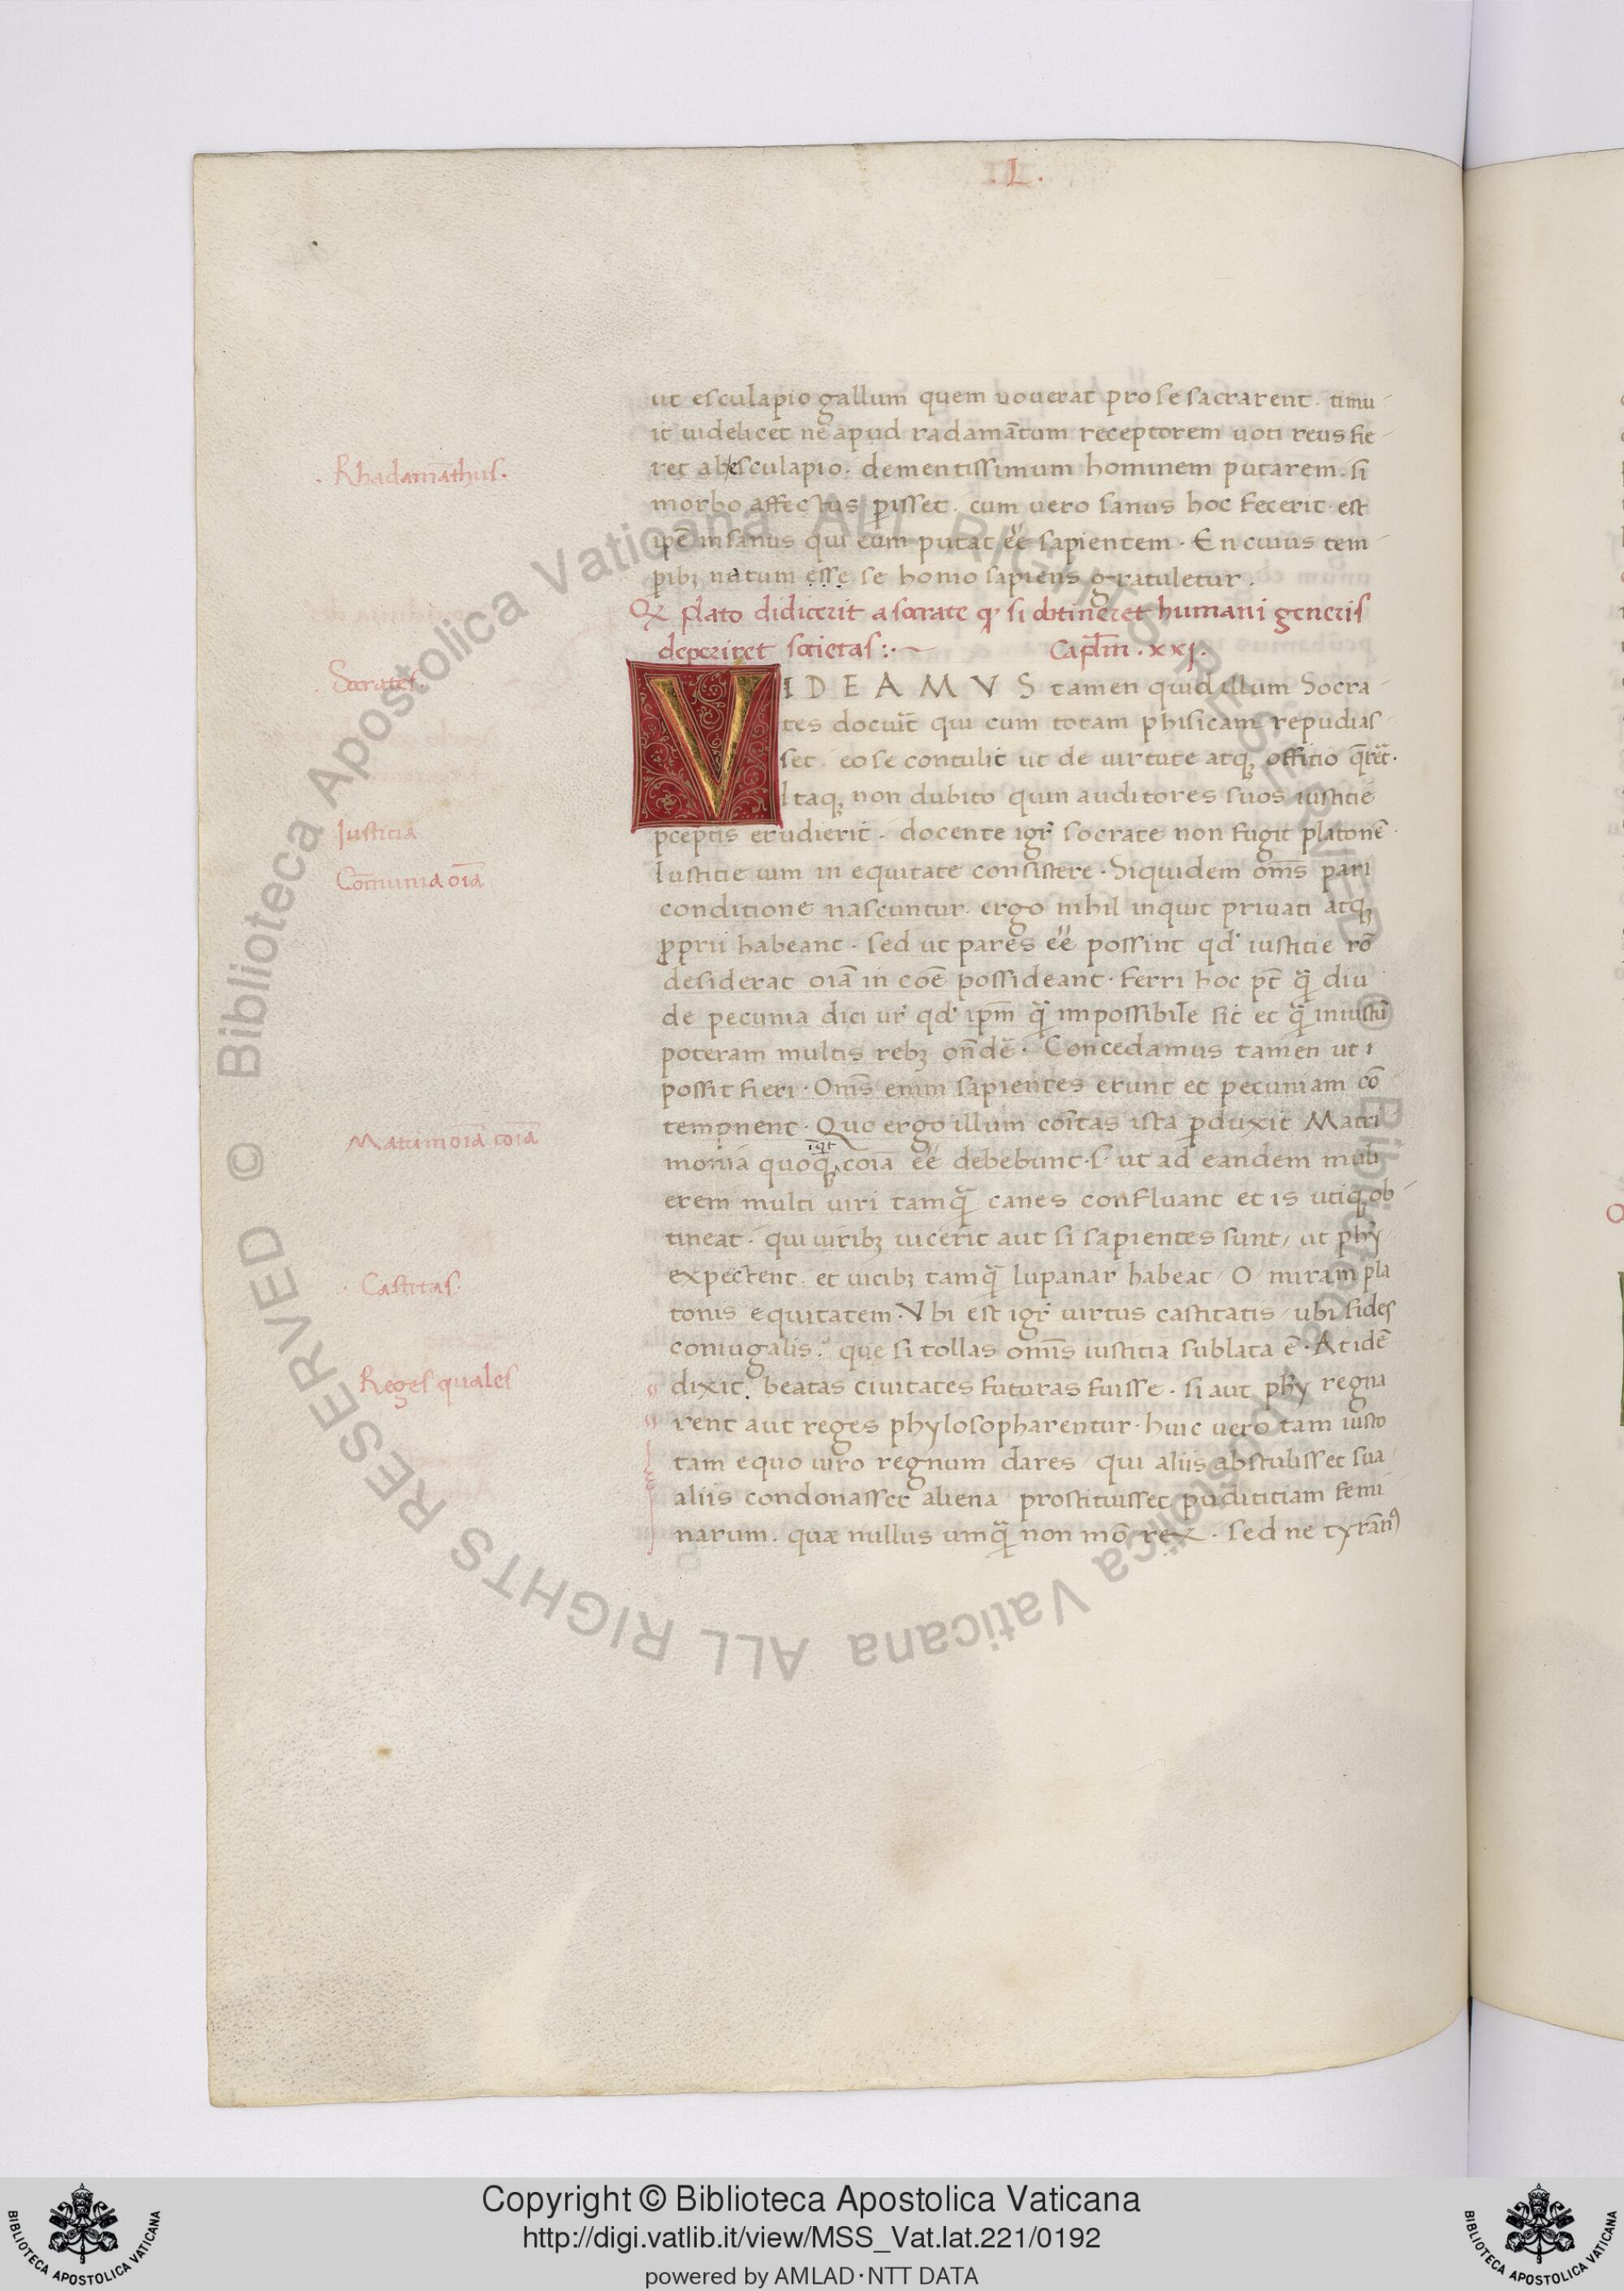 .L.
ut esculapio gallum quem vouerat pro se sacrarent. timu-
it uidelicet ne apud radamātum receptorem uoti reus fie-
ret ab esculapio. dementissimum hominem putarem. si
morbo affectus ꝑisset. cum uero sanus hoc fecerit est
ip̄e insanus qui eum putat ēē sapientem. En cuius tem-
pibꝫ natum esse se homo sapiens gratuletur.
Rhadamathus.
Qꝫ plato didicerit a socrate qꝫ si obtineret humani generis
deperiret societas:. Cap̄lm .xxj.
Socrates.
VIDEAMVS tamen quid illum Socra-
tes docuīt qui cum totam phisicam repudias-
set. eo se contulit ut de uirtute atqꝫ offitio q̄rēt.
Itaqꝫ non dubito quin auditores suos iustitie
p̄ceptis erudierit. docente igr̄ socrate non fugit platonē.
Iustitie uim in equitate consistere. Siquidem om̄s pari
conditione nascuntur. ergo nihil inquit priuati atqꝫ
ꝓprii habeant. sed ut pares ēē possint qd' iustitie rō
desiderat oīa in cōe possideant. ferri hoc pt̄ q̄ diu
de pecunia dici ur̄ qd' ip̄m q̄ impossibile sit et q̄ iniustū
poteram multis rebꝫ on̄dē. Concedamus tamen ut i
possit fieri. Om̄s enim sapientes erunt et pecuniam cō
temnent. Quo ergo illum cōitas ista ꝑduxit Matri
monia quoqꝫ iqt coīa ēē debebunt. s. ut ad eandem muli
erem multi uiri tamq̄ canes confluant et is utiqꝫ ob-
tineat. qui uiribꝫ uicerit aut si sapientes sunt, ut phy
expectent. et uicibꝫ tamq̄ lupanar habeat, O, miram pla
tonis equitatem. Vbi est igr̄ uirtus castitatis, ubi fides
coniugalis. que si tollas omīs iustitia sublata ē. At idē
dixit. beatas ciuitates futuras fuisse. si aut phy regna
rent aut reges phylosopharentur. huic uero tam iusto
tam equo uiro regnum dares, qui aliis abstulisset sua
aliis condonasset aliena prostituisset pudititiam femi
narum. quæ nullus umq̄ non mō rex. sed ne tyrānꝰ
Justicia
Cōmunia oīa
Matrimoīa coīa
. Castitas.
Reges quales
© Biblioteca Apostolica Vaticana ALL RIGHTS RESERVED © Biblioteca Apostolica Vaticana ALL RIGHTS RESERVED
BIBLIOTECA APOSTOLICA VATICANA
Copyright © Biblioteca Apostolica Vaticana
http://digi.vatlib.it/view/MSS_Vat.lat.221/0192
powered by AMLAD·NTT DATA
BIBLIOTECA APOSTOLICA VATICANA